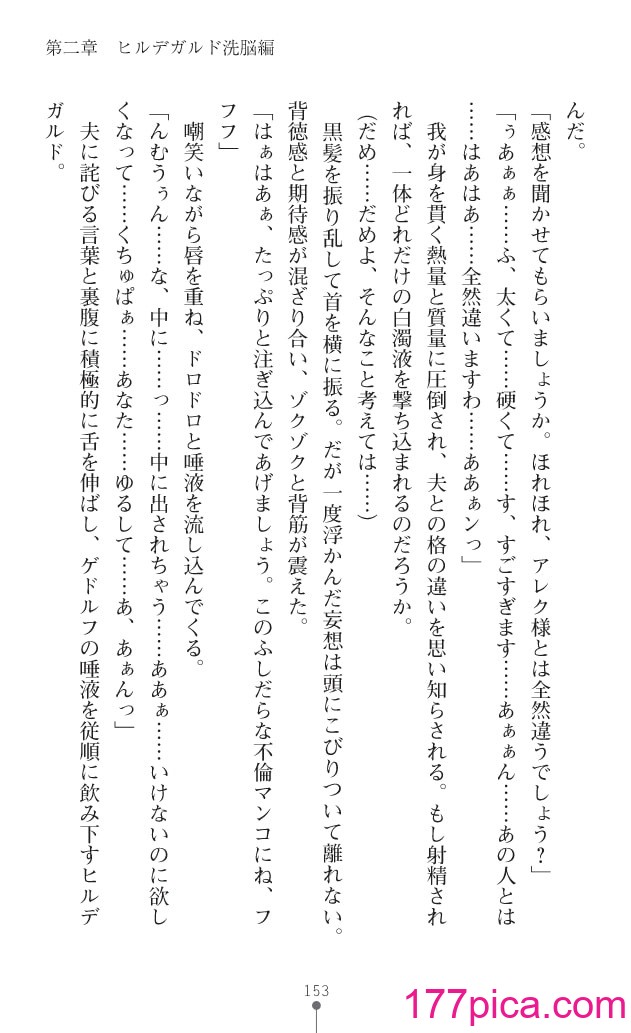 第二章　ヒルデガルド洗脳編
んだ。
「感想を聞かせてもらいましょうか。ほれほれ、アレク様とは全然違うでしょう？」
「ぅあぁぁ……ふ、太くて……硬くて……す、すごすぎます……あぁぁん……あの人とは
……はあはあ……全然違いますわ……ああぁンっ」
我が身を貫く熱量と質量に圧倒され、夫との格の違いを思い知らされる。もし射精され
れば、一体どれだけの白濁液を撃ち込まれるのだろうか。
（だめ……だめよ、そんなこと考えては……）
黒髪を振り乱して首を横に振る。だが一度浮かんだ妄想は頭にこびりついて離れない。
背徳感と期待感が混ざり合い、ゾクゾクと背筋が震えた。
「はぁはあぁ、たっぷりと注ぎ込んであげましょう。このふしだらな不倫マンコにね、フ
フフ」
嘲笑いながら唇を重ね、ドロドロと唾液を流し込んでくる。
「んむうぅん……な、中に……っ……中に出されちゃう……ああぁ……いけないのに欲し
くなって……くちゅぱぁ……あなた……ゆるして……あ、あぁんっ」
夫に詫びる言葉と裏腹に積極的に舌を伸ばし、ゲドルフの唾液を従順に飲み下すヒルデ
ガルド。
153
177pica.com